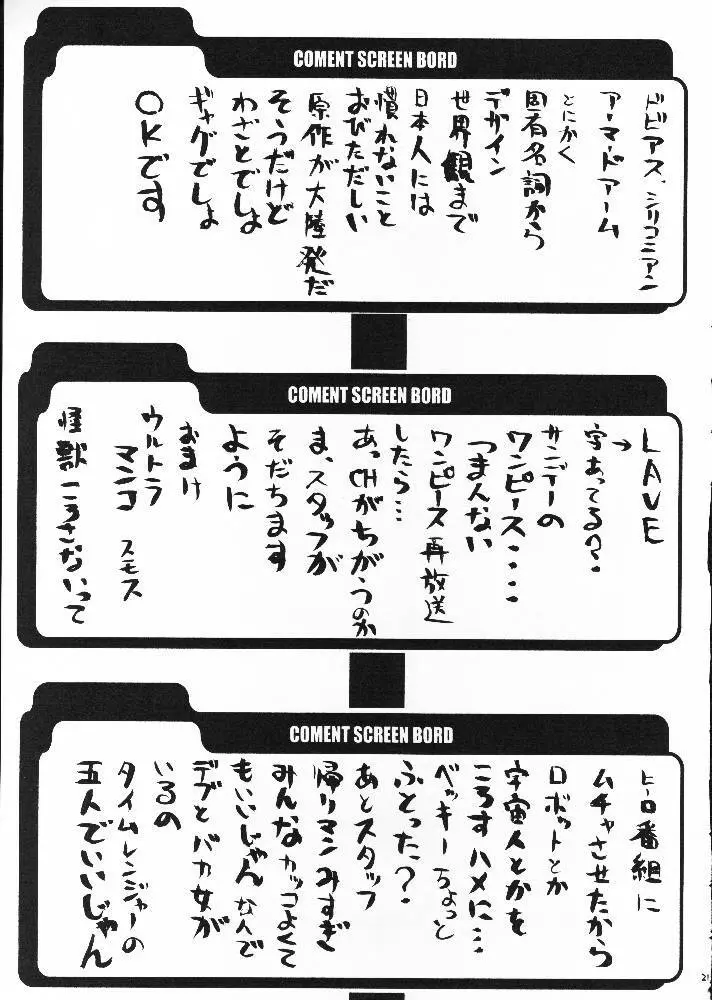 COMENT SCREEN BORD
ドビアス、シリコニアン
アーマードアーム
とにかく
固有名詞から
デザイン
世界観まで
日本人には
慣れないこと
おびただしい
原作が大陸発だ
そうだけど
わざとでしょ
ギャグでしょ
OKです
COMENT SCREEN BORD
LAVE
→字あってる?・
サンデーの
ワンピース・・・・
つまんない
ワンピース再放送
したら…
あっCHがちがうのか
ま、スタッフが
そだちます
ように
おまけ
ウルトラ
マンコスモス
怪獣ころさないって
COMENT SCREEN BORD
ヒーロ番組に
ムチャさせたから
ロボットとか
宇宙人とかを
ころすハメに…
ベッキーちょっと
ふとった?
あとスタッフ
帰りマンみすぎ
みんなカッコよくて
もいいじゃんなんで
デブとバカ女が
いるの
タイムレンジャーの
五人でいいじゃん
21